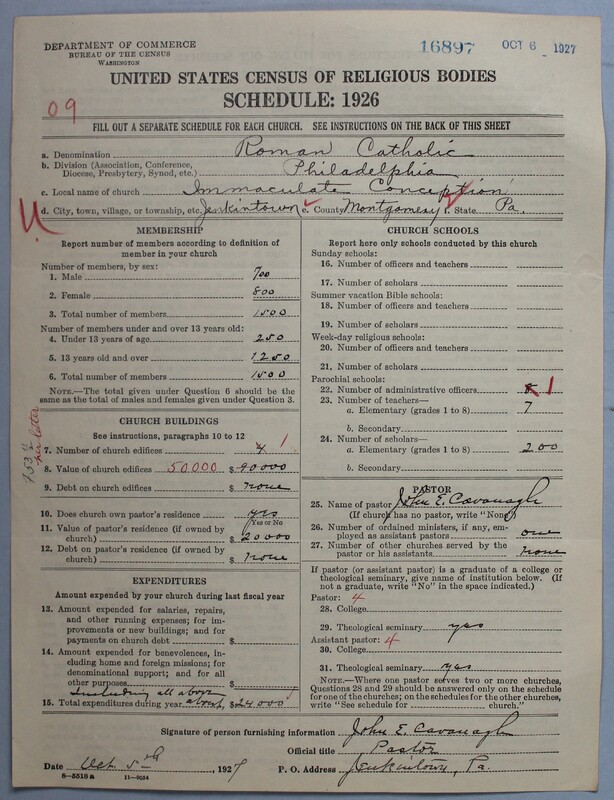 DEPARTMENT OF COMMERCE
BUREAU OF THE CENSUS
WASHINGTON
16897 OCT 6 1927
UNITED STATES CENSUS OF RELIGIOUS BODIES
SCHEDULE: 1926
09
FILL OUT A SEPARATE SCHEDULE FOR EACH CHURCH. SEE INSTRUCTIONS ON THE BACK OF THIS SHEET
a. Denomination Roman Catholic
b. Division (Association, Conference, Diocese, Presbytery, Synod, etc.) Philadelphia
c. Local name of church Immaculate Conception
d. City, town, village, or township, etc. Jenkintown e. County Montgomery f. State Pa.
MEMBERSHIP
Report number of members according to definition of
member in your church
Number of members, by sex:
1. Male 700
2. Female 800
3. Total number of members 1500
Number of members under and over 13 years old:
4. Under 13 years of age 250
5. 13 years old and over 1250
6. Total number of members 1500
NOTE.—The total given under Question 6 should be
same as the total of males and females given under Question 3.
CHURCH BUILDINGS
See instructions, paragraphs 10 to 12
7. Number of church edifices 4 1
8. Value of church edifices 50,000 $ 90000
9. Debt on church edifices $ none
per letter
10. Does church own pastor's residence yes
Yes or No
11. Value of pastor's residence (if owned by
church) $ 20000
12. Debt on pastor's residence (if owned by
church) $ none
EXPENDITURES
Amount expended by your church during last fiscal year
13. Amount expended for salaries, repairs,
and other running expenses; for im-
provements or new buildings; and for
payments on church debt $
14. Amount expended for benevolences, in-
cluding home and foreign missions; for
denominational support; and for all
other purposes $
Including all above
15. Total expenditures during year about $ 24,000
CHURCH SCHOOLS
Report here only schools conducted by this church
Sunday schools:
16. Number of officers and teachers
17. Number of scholars
Summer vacation Bible schools:
18. Number of officers and teachers
19. Number of scholars
Week-day religious schools:
20. Number of officers and teachers
21. Number of scholars
Parochial schools:
22. Number of administrative officers 8 1
23. Number of teachers—
a. Elementary (grades 1 to 8) 7
b. Secondary
24. Number of scholars—
a. Elementary (grades 1 to 8) 200
b. Secondary
PASTOR
25. Name of pastor John E. Cavanagh
(If church has no pastor, write "None")
26. Number of ordained ministers, if any, em-
ployed as assistant pastors one
27. Number of other churches served by the
pastor or his assistants none
If pastor (or assistant pastor) is a graduate of a college or
theological seminary, give name of institution below. (If
not a graduate, write "No" in the space indicated.)
Pastor: 4
28. College
29. Theological seminary yes
Assistant pastor: 4
30. College
31. Theological seminary yes
NOTE.—Where one pastor serves two or more churches,
Questions 28 and 29 should be answered only on the schedule
for one of the churches; on the schedules for the other churches,
write "See schedule for church."
Signature of person furnishing information John E. Cavanagh
Official title Pastor
Date Oct. 5th 1927 P. O. Address Jenkintown, Pa.
8-5518a 11-9034